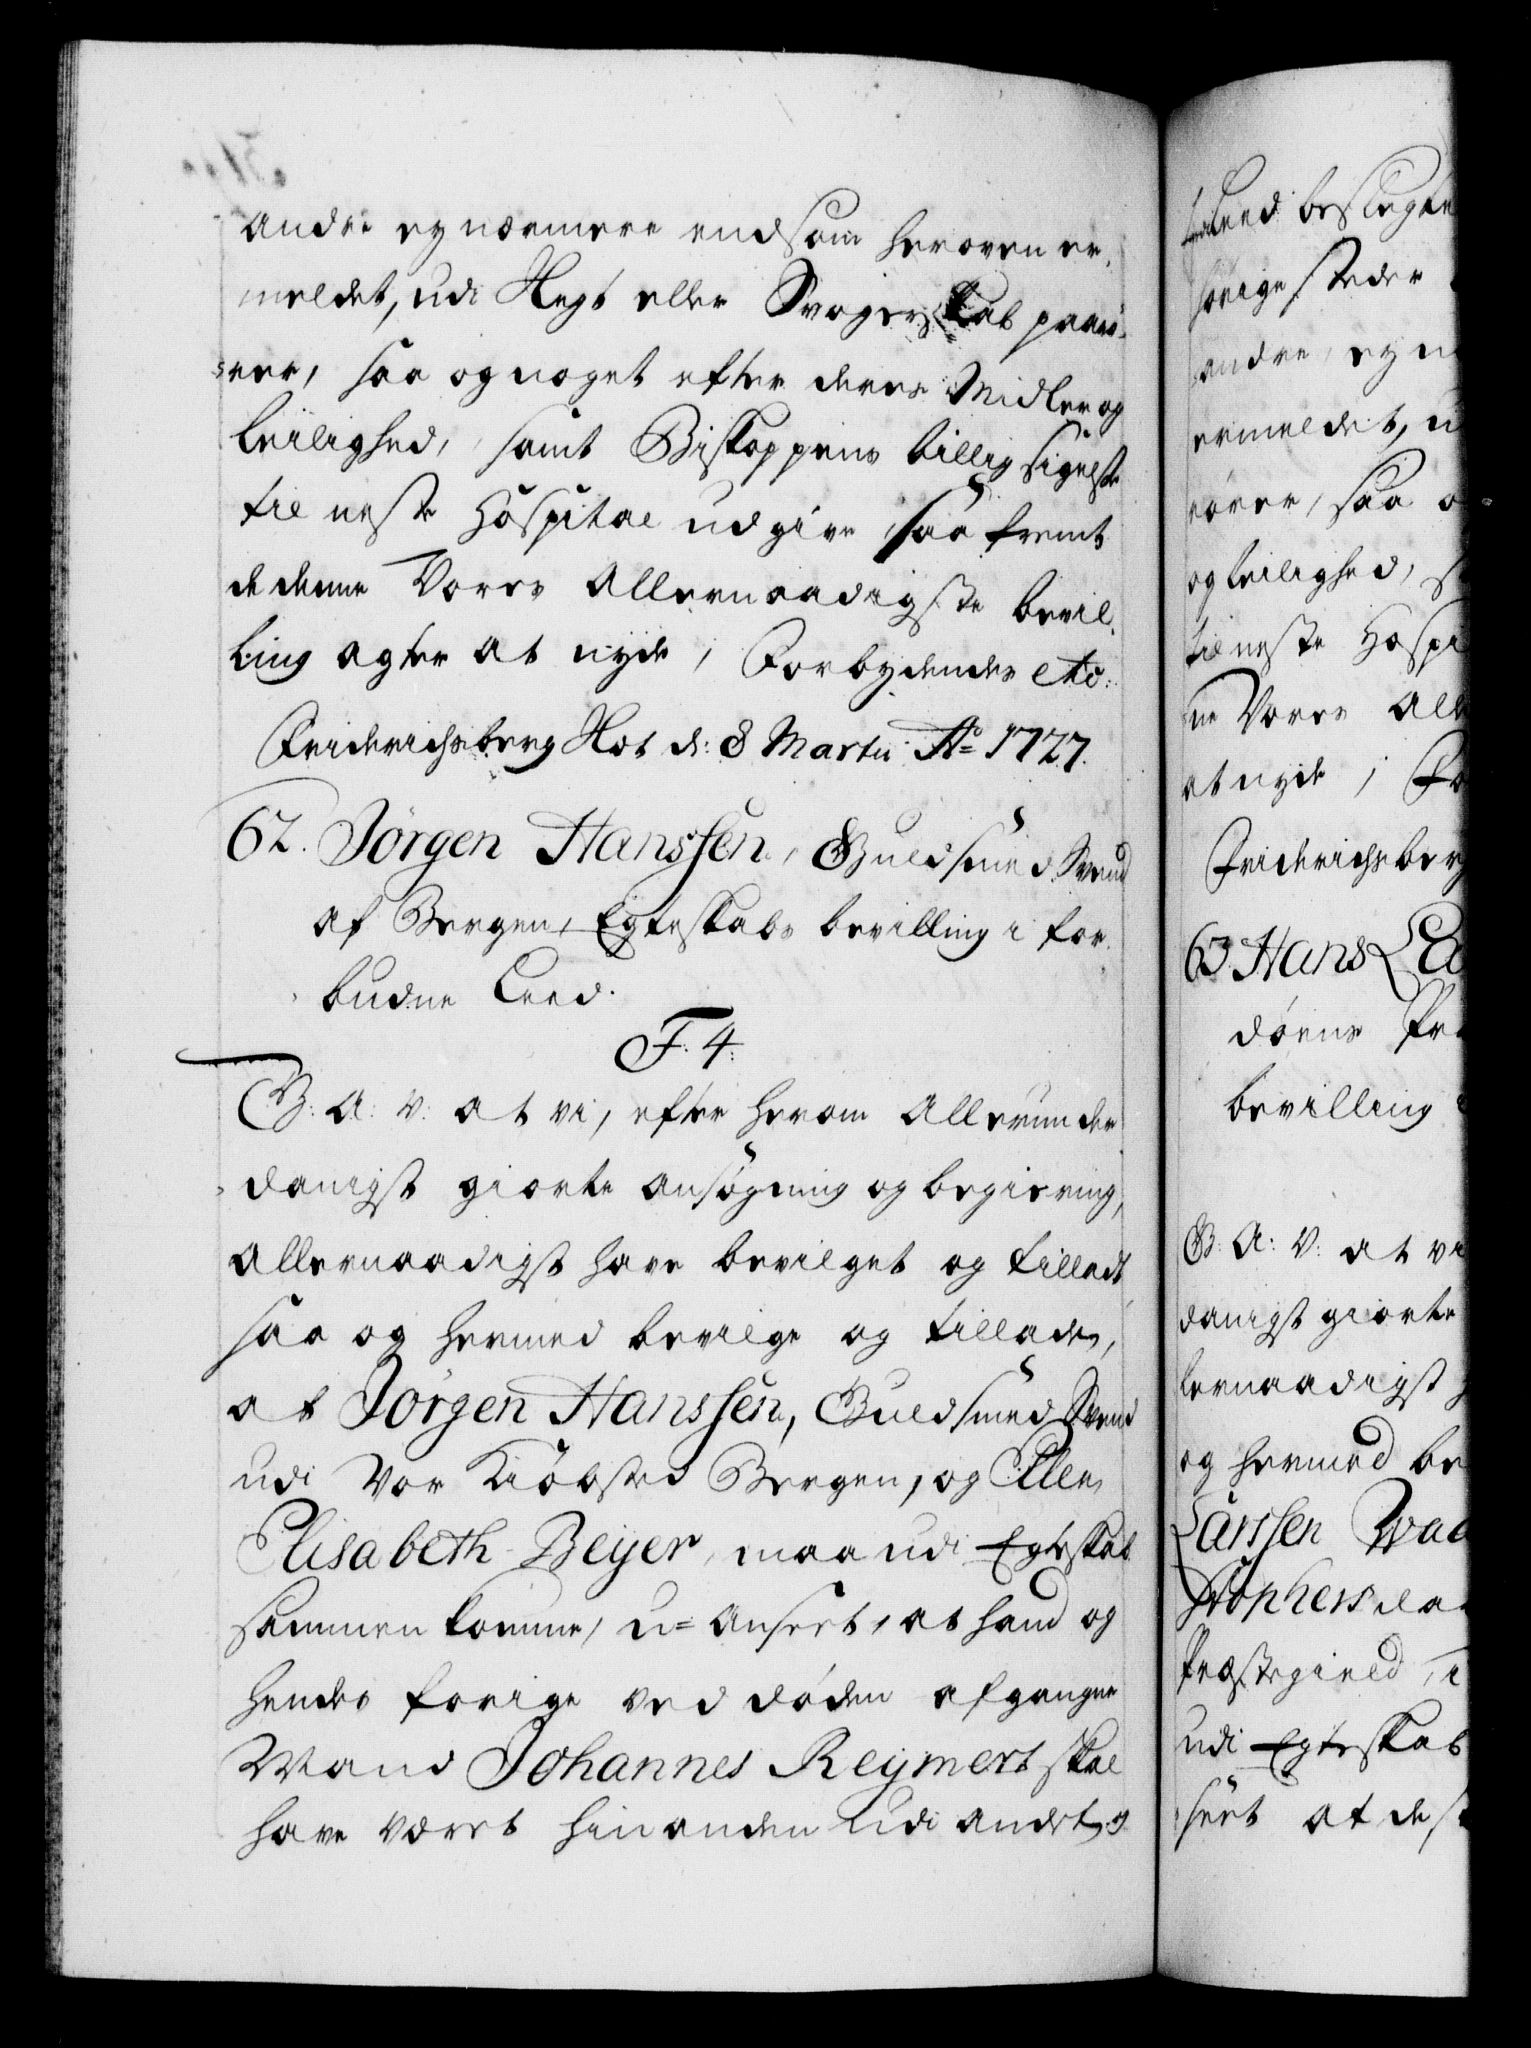 andre ey nærmere end som heroven er
meldet, udi Slegt eller Svogerskab paarö-
rer, saa og noget efter deres Midler og
leilighed, samt Biskoppens billig sigelse
til neste Hospital udgive, saa fremt
de denne Vores Allernaadigste bevil-
ling agter at nyde, Forbydendes etc:
Friderichsberg Slot d: 8 Martii Ao 1727.
62. Jörgen Hanssen, Guldsmed Svend
af Bergen, Egteskabs bevilling i for
budne Leed.
F. 4.
G: A: V: at vi, efter herom Allerunder
danigst giorte ansögning og begiering,
Allernaadigst have bevilget og tilladt,
saa og hermed bevilge og tillade,
at Jörgen Hanssen, Guldsmed Svend
udi Vor Kiöbsted Bergen, og Elle
Elisabeth Beyer, maa udi Egteskab
sammen komme, u-anseet, at hand og
hendes forige ved döden afgangne
Mand Johannes Reymert skal
have været hinanden udi andet og
leed beslegte
hörige steder
andre, ey n
ermeldet, u
rörer, saa o
og leilighed, s
til neste Hospi
ne Vores All
at nyde, Fo
Friderichsberg
63. Hans La
döens Pr
bevilling
G: A: V: at vi
danigst giorte
lernaadigst
og hermed be
Larssen Wad
stophers da
Præstegield, i
udi Egteskab
seet at de s